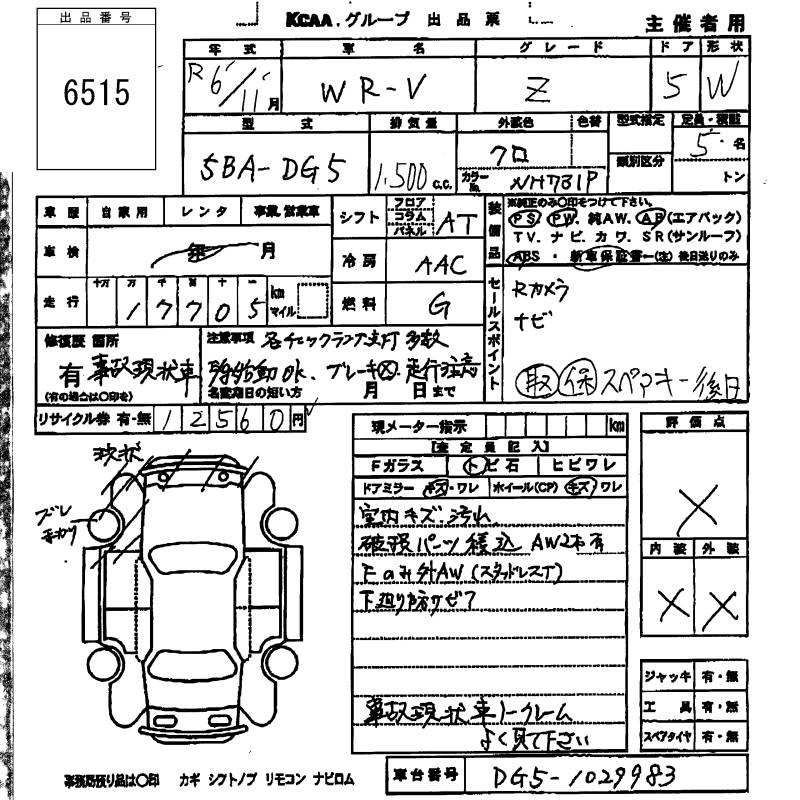 出品番号
6515
KCAA.グループ 出品票
主催者用
年式 車名 グレード ドア 形状
R6/11月 WR-V Z 5 W
型式 排気量 外装色 色替 型式指定 定員・積載
5BA-DG5 1,500c.c. クロ 類別区分 5名
カラーNo. NH731P トン
車歴 自家用 レンタ 事業,営業車
シフト フロア コラム パネル AT
車検 年 月
冷房 AAC
走行 十万 万 千 百 十 一 km マイル
1 7 7 0 5
燃料 G
装備品
※純正のみ○印をつけて下さい。
PS. PW. 純AW. AB(エアバック)
TV. ナビ. カワ. SR(サンルーフ)
ABS・新車保証書―(注)後日送りのみ
セールスポイント
Rカメラ
ナビ
取 保 スペアキー後日
修復歴 箇所
有 事故現状車
(有の場合は○印を)
注意事項 各チェックランプ点灯多数
始動OK. ブレーキ× 走行注意
名変期日の短い方 月 日まで
リサイクル券 有・無 12560円
現メーター指示 km
【査定員記入】
Fガラス トビ石 ヒビワレ
ドアミラー キズ・ワレ ホイール(CP) キズ ワレ
室内キズ.汚れ
破損パーツ積込 AW2本有
Fのみ外AW(スタッドレスT)
下廻り防サビ
事故現状車ノークレーム
よく見て下さい
評価点
×
内装 外装
× ×
ジャッキ 有・無
工具 有・無
スペアタイヤ 有・無
現状
ブレ
車台番号 DG5-1029983
事務局預り品は○印 カギ シフトノブ リモコン ナビロム